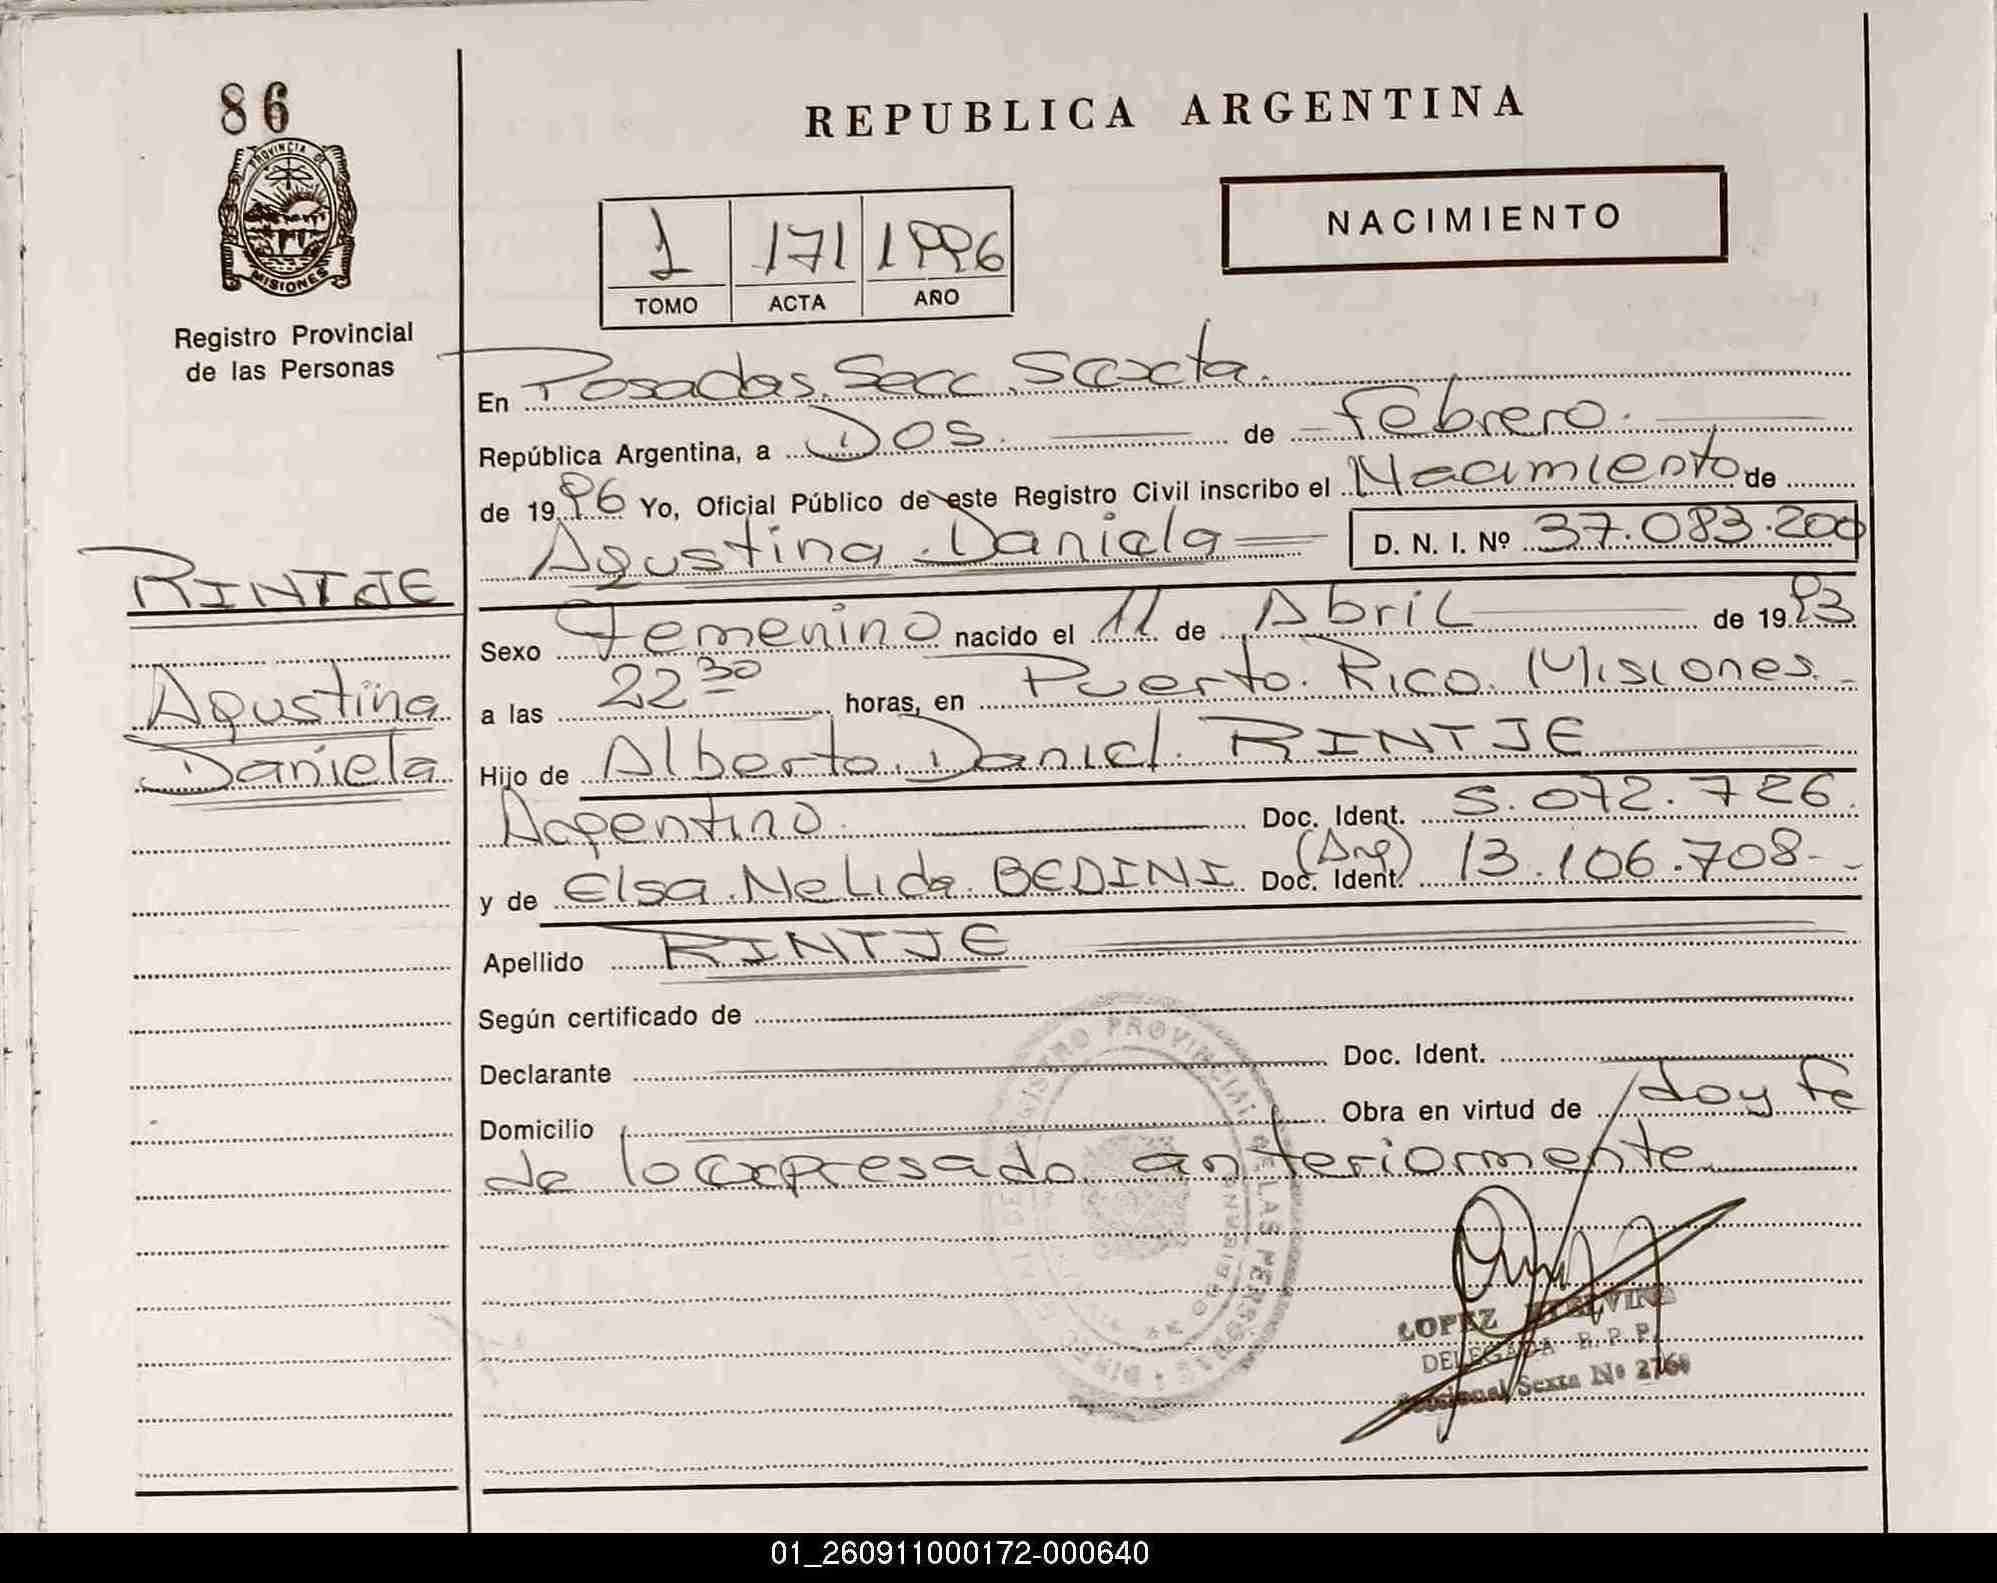 86
PROVINCIA DE
MISIONES
Registro Provincial
de las Personas
REPUBLICA ARGENTINA
NACIMIENTO
1 171 1996
TOMO ACTA AÑO
En Posadas. Secc. Sexta.
República Argentina, a Dos. de Febrero.
de 1996 Yo, Oficial Público de este Registro Civil inscribo el Nacimiento de
Agustina Daniela D. N. I. Nº 37.083.200
RINTJE
Agustina
Daniela
Sexo Femenino nacido el 11 de Abril de 1993
a las 22 30 horas, en Puerto. Rico. Misiones.
Hijo de Alberto. Daniel. RINTJE
Argentino. Doc. Ident. 5.072.726.
y de Elsa. Nelida. BEDINI (Arg) Doc. Ident. 13.106.708.-
Apellido RINTJE
Según certificado de
Declarante Doc. Ident.
Domicilio Obra en virtud de doy fe
de lo expresado anteriormente
REGISTRO PROVINCIAL DE LAS PERSONAS
LOPEZ
DELEGADA R. P. P.
Seccional Sexta Nº 2760
01_260911000172-000640